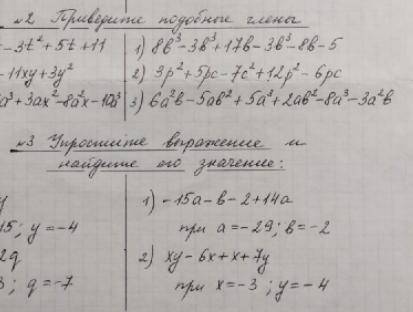 №2 Приведите подобные члены
-3t² + 5t + 11 1) 8b³ - 3b³ + 17b - 3b³ - 8b - 5
-11xy + 3y² 2) 3p² + 5pc - 7c² + 12p² - 6pc
a³ + 3ax² - 8a²x - 10a³ 3) 6a²b - 5ab² + 5a³ + 2ab² - 8a³ - 3a²b
№3 Упростите выражение и
найдите его значение:
y 1) -15a - b - 2 + 14a
15; y = -4 при a = -29; b = -2
2q 2) xy - 6x + x + 7y
3; q = -7 при x = -3; y = -4